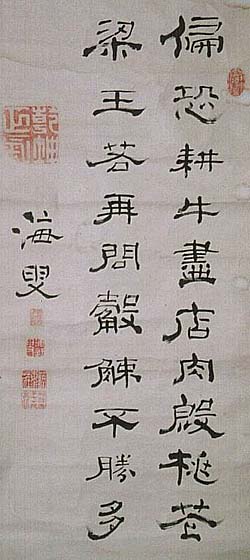 偏恐耕牛盡店肉殷
梁王若再問觳觫不勝多
海叟